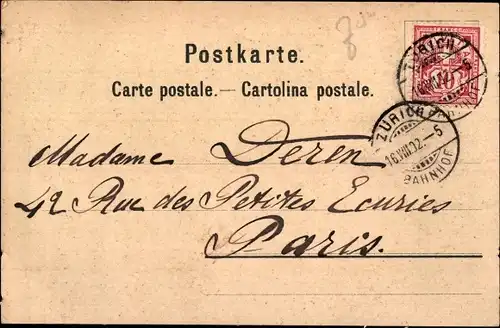 Postkarte.
Carte postale. — Cartolina postale.
ZÜRICH
10
ZÜRICH
16.VIII.02.—5
BAHNHOF
Madame Deren
42 Rue des Petites Ecuries
Paris.